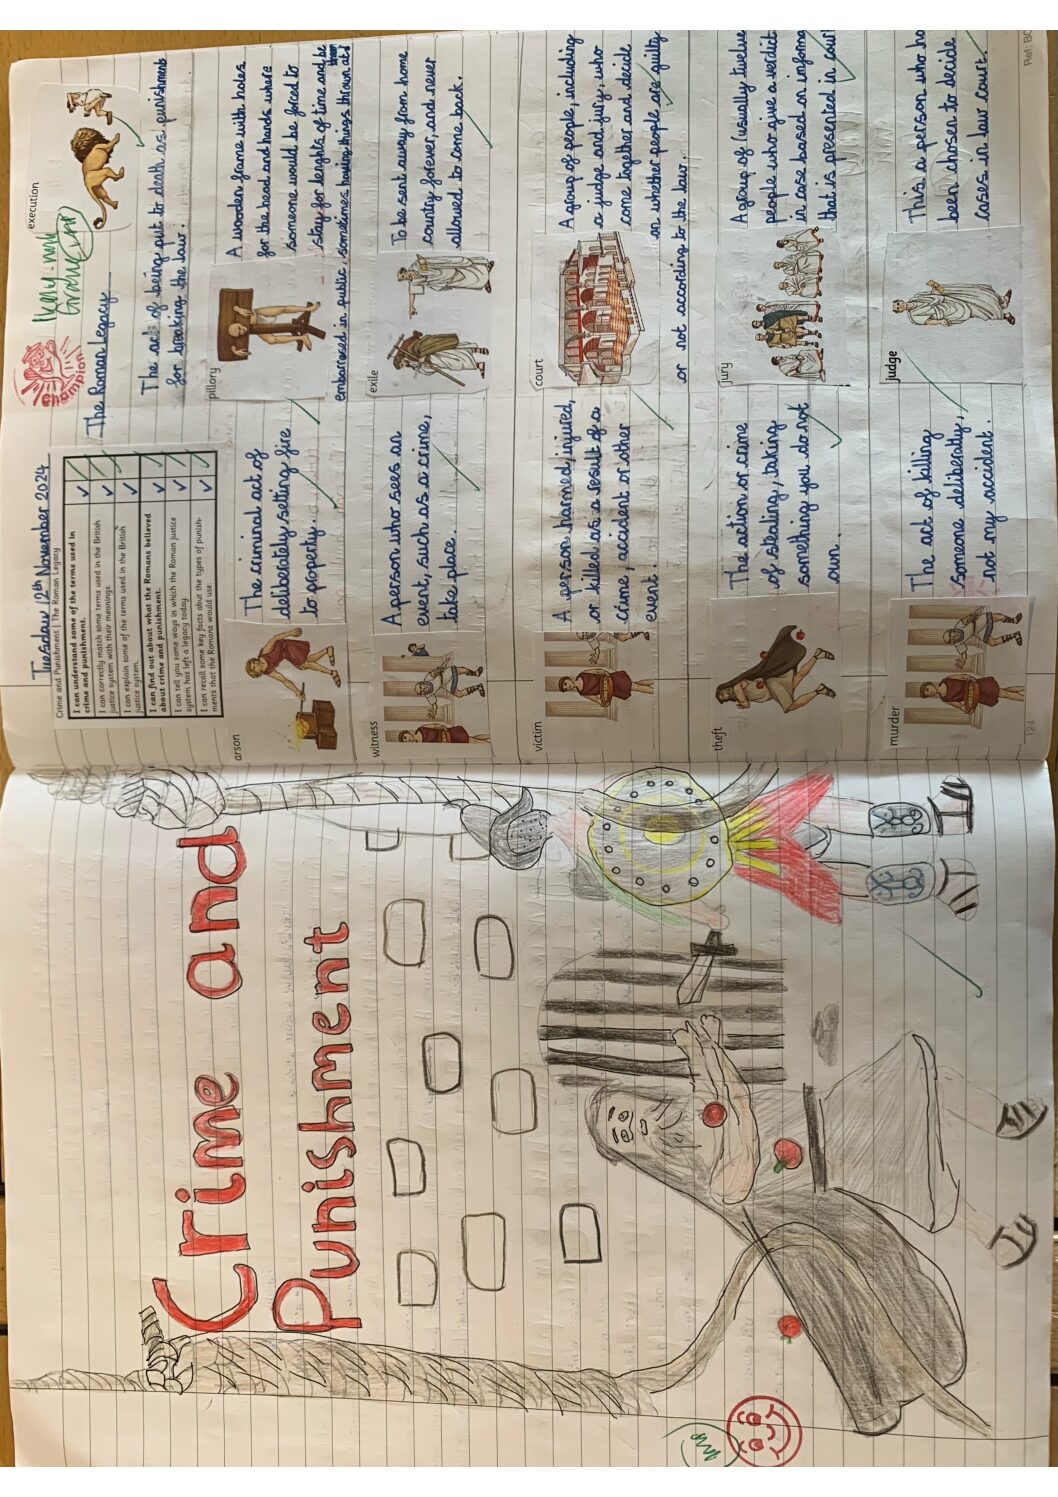 Crime and
Punishment
Tuesday 12th November 2024
Crime and Punishment | The Roman Legacy
I can understand some of the terms used in
crime and punishment.
I can correctly match some terms used in the British
justice system with their meanings.
I can explain some of the terms used in the British
justice system.
I can find out about what the Romans believed
about crime and punishment.
I can tell you some ways in which the Roman justice
system has left a legacy today.
I can recall some key facts about the types of punish-
ments that the Romans would use.
champion
The Roman Legacy
execution
The act of being put to death as punishment
for breaking the law.
arson
The criminal act of
deliberately setting fire
to property.
pillory
A wooden frame with holes
for the head and hands where
someone would be forced to
stay for lenghts of time and be
embarrosed in public, sometimes having things thrown at
witness
A person who sees an
event, such as a crime,
take place.
exile
To be sent away from home
country forever, and never
allowed to come back.
victim
A person harmed, injured,
or killed as a result of a
crime, accident or other
event.
court
A group of people, including
a judge and jury, who
come together and decide
on whether people are guilty
or not according to the law.
theft
The action or crime
of stealing, taking
something you do not
own.
jury
A group of (usually twelve
people who give a verdict
in case based on informa
that is presented in cour
murder
The act of killing
someone deliberately,
not my accident.
judge
This is a person who ha
been chosen to decide
cases in law court.
124